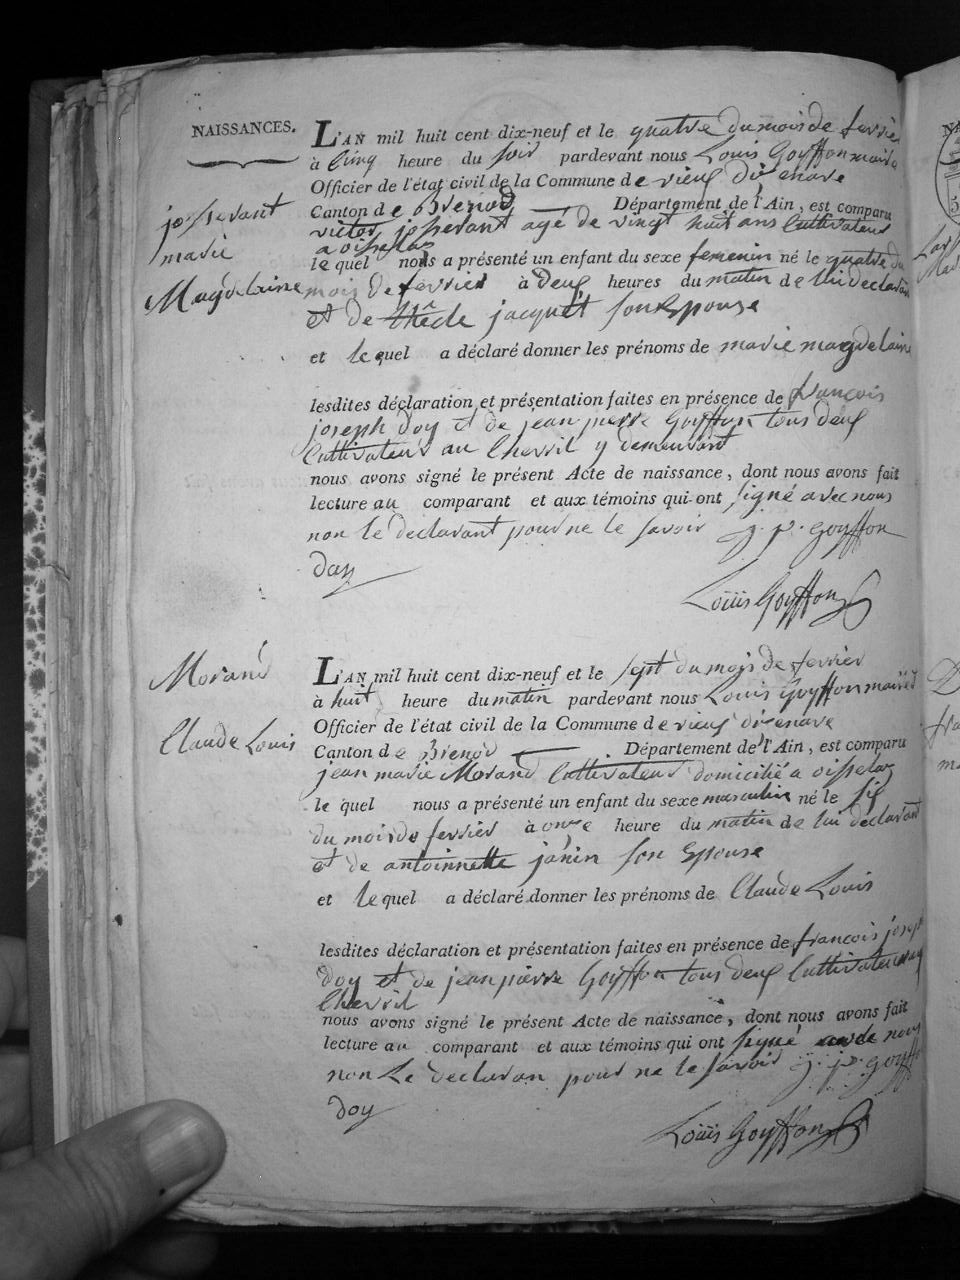 NAISSANCES.
L'AN mil huit cent dix-neuf et le quatre du mois de fevrier
à Cinq heure du soir pardevant nous Louis Goyffon maire
Officier de l'état civil de la Commune de vieux d'izenave
Canton de Brenod Département de l'Ain, est comparu
victor josserant agé de vingt huit ans Cultivateur
a oisselas
josserant
marie
Magdelaine
le quel nous a présenté un enfant du sexe femenin né le quatre du
mois de fevrier à deux heures du matin de lui declarant
et de thècle jacquet son Epouse
et le quel a déclaré donner les prénoms de marie magdelaine
lesdites déclaration et présentation faites en présence de françois
joseph doy et de jean pierre Goyffon tous deux
Cultivateurs au Chevril y demeurant
nous avons signé le présent Acte de naissance, dont nous avons fait
lecture au comparant et aux témoins qui ont signé avec nous
non le declarant pour ne le savoir j. p. goyffon
doy
Louis Goyffon
Morand
Claude Louis
L'AN mil huit cent dix-neuf et le sept du mois de fevrier
à huit heure du matin pardevant nous Louis Goyffon maire
Officier de l'état civil de la Commune de vieux d'izenave
Canton de Brenod Département de l'Ain, est comparu
jean marie Morand Cultivateur domicilié a oisselaz
le quel nous a présenté un enfant du sexe masculin né le six
du mois de fevrier à onze heure du matin de lui déclarant
et de antoinnette janin son Epouse
et le quel a déclaré donner les prénoms de Claude Louis
lesdites déclaration et présentation faites en présence de francois joseph
doy et de jean pierre Goyffon tous deux Cultivateurs au
Chevril
nous avons signé le présent Acte de naissance, dont nous avons fait
lecture au comparant et aux témoins qui ont signé nous
non Le declaran pour ne le savoir j. p. goyffon
doy
Louis Goyffon